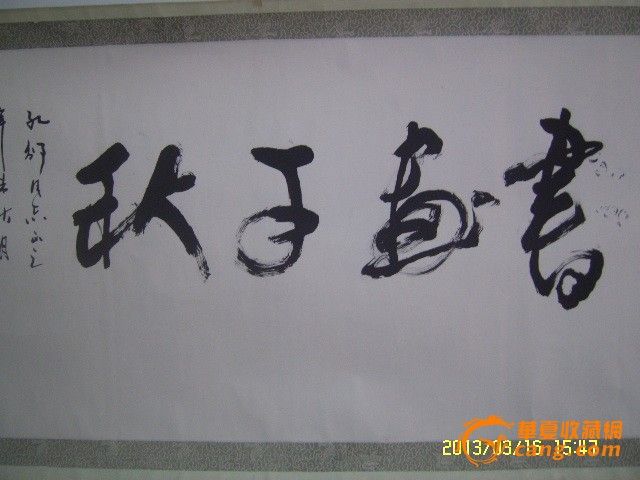 書畫千秋
同志正之
華夏收藏網
cang.com
2013/03/16 15:47